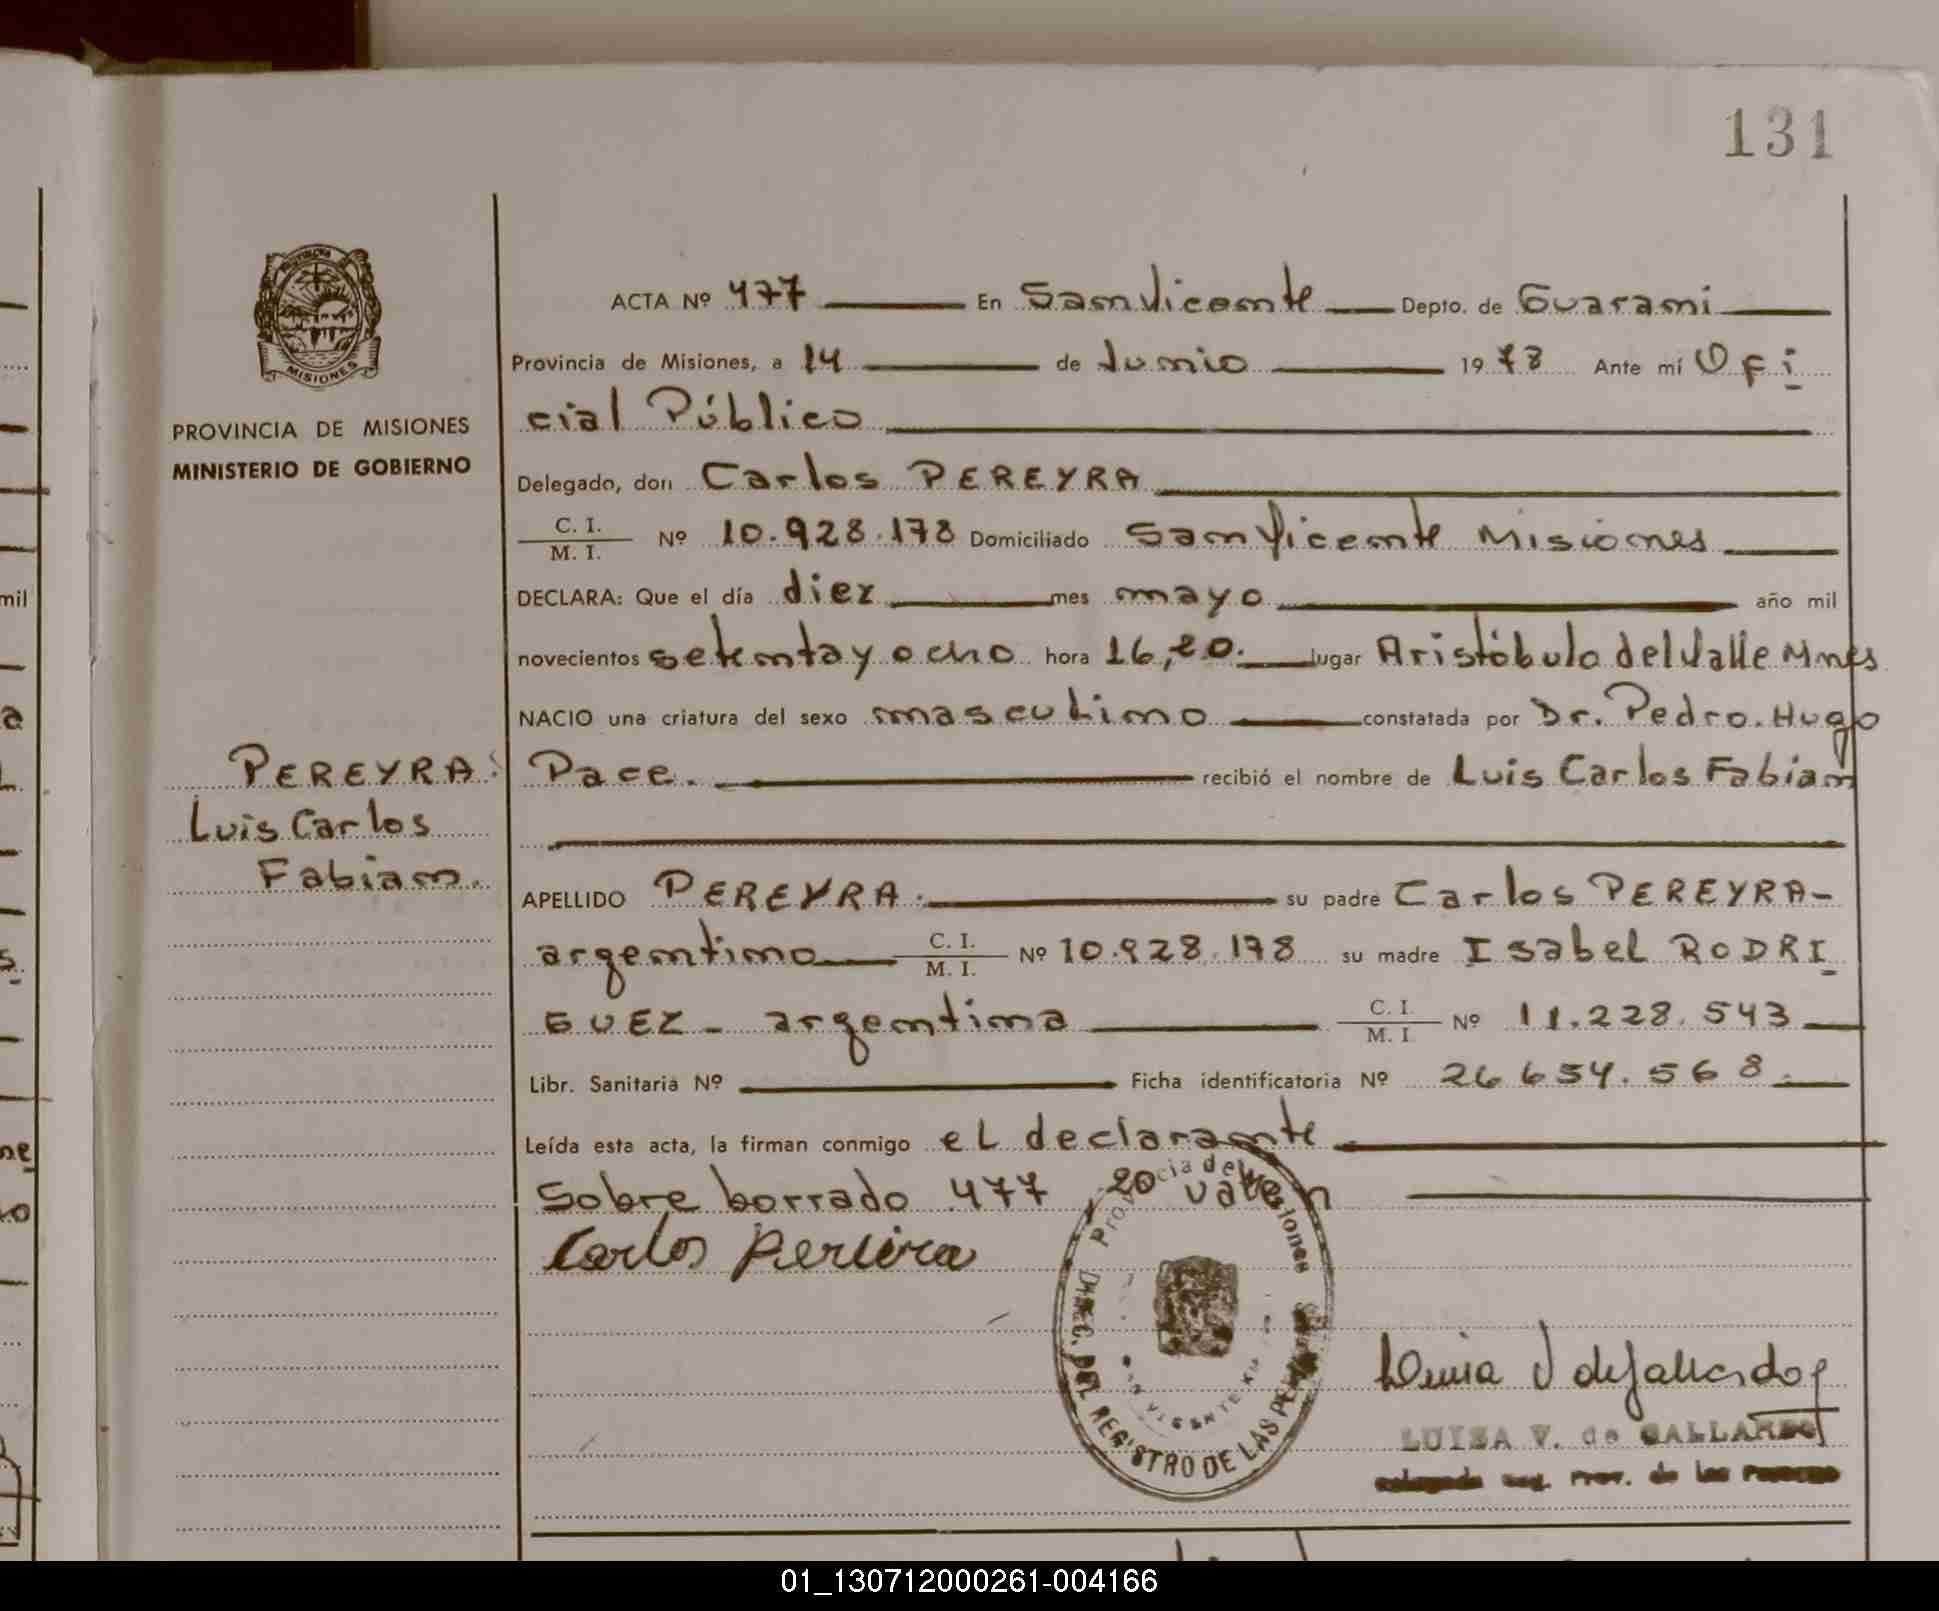 131
ACTA Nº 477 En San Vicente Depto. de Guarani
Provincia de Misiones, a 14 de Junio 1978 Ante mí Ofi
cial Público
PROVINCIA DE MISIONES
MINISTERIO DE GOBIERNO
MISIONES
Delegado, don Carlos PEREYRA
C. I.
M. I. Nº 10.928.178 Domiciliado San Vicente Misiones
DECLARA: Que el día diez mes mayo año mil
novecientos setenta y ocho hora 16,20. lugar Aristóbulo del Valle Mnes
NACIO una criatura del sexo masculino constatada por Dr. Pedro. Hugo
Pace. recibió el nombre de Luis Carlos Fabian
PEREYRA:
Luis Carlos
Fabian.
APELLIDO PEREYRA. su padre Carlos PEREYRA-
argentino C. I.
M. I. Nº 10.928.178 su madre Isabel RODRI
GUEZ - argentina C. I.
M. I Nº 11.228.543
Libr. Sanitaria Nº Ficha identificatoria Nº 26 654.568.
Leída esta acta, la firman conmigo el declarante
Sobre borrado 477, 20 valen
Carlos Pereira
Provincia de Misiones
DIREC. DEL REGISTRO DE LAS
LUISA V. de GALLARDO
Prov. de las
mil
01_130712000261-004166